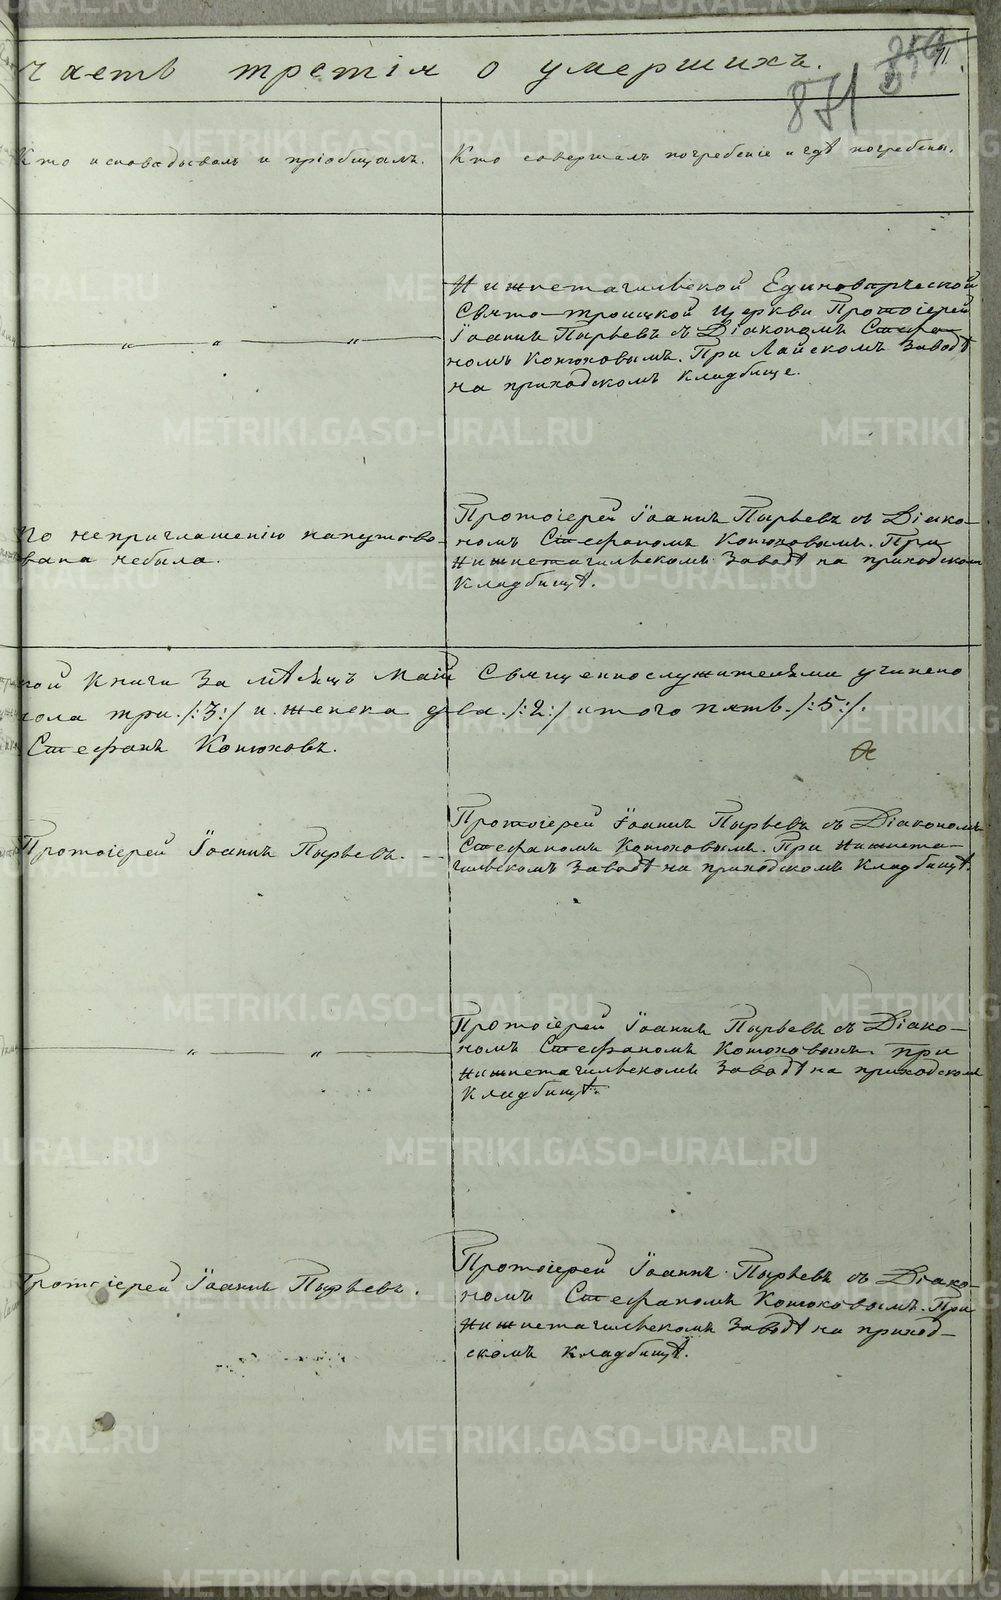 часть третія о умершихъ.
871
Кто исповадывалъ и пріобщалъ.
Кто совершалъ погребеніе и гдѣ погребены.
Нижнетагильской Единоверческой
Свято-троицкой Церкви Протоіерей
Іоаннъ Пырьевъ съ Діакономъ Стефа-
номъ Конюховымъ. При Лайскомъ Заводѣ
на приходскомъ кладбище.
По неприглашенію напутство-
вана небыла.
Протоіерей Іоаннъ Пырьевъ съ Діако-
номъ Стефаномъ Конюховымъ. При
Нижнетагильскомъ Заводѣ на приходском
Кладбищѣ.
Книги За мѣсяцъ Май Священнослужителями учинено
пола три /:3:/ и женска два /:2:/ итого пять /:5:/.
Стефанъ Конюховъ.
Протоіерей Іоаннъ Пырьевъ.
Протоіерей Іоаннъ Пырьевъ съ Діакономъ
Стефаномъ Конюховымъ. При Нижнета-
гильскомъ Заводѣ на приходскомъ Кладбищѣ.
Протоіерей Іоаннъ Пырьевъ съ Діако-
номъ Стефаномъ Конюховымъ. при
Нижнетагильскомъ Заводѣ на приходском
Кладбищѣ.
Протоіерей Іоаннъ Пырьевъ.
Протоіерей Іоаннъ Пырьевъ съ Діако-
номъ Стефаномъ Конюховымъ. При
Нижнетагильскомъ Заводѣ на приход-
скомъ кладбищѣ.
METRIKI.GASO-URAL.RU